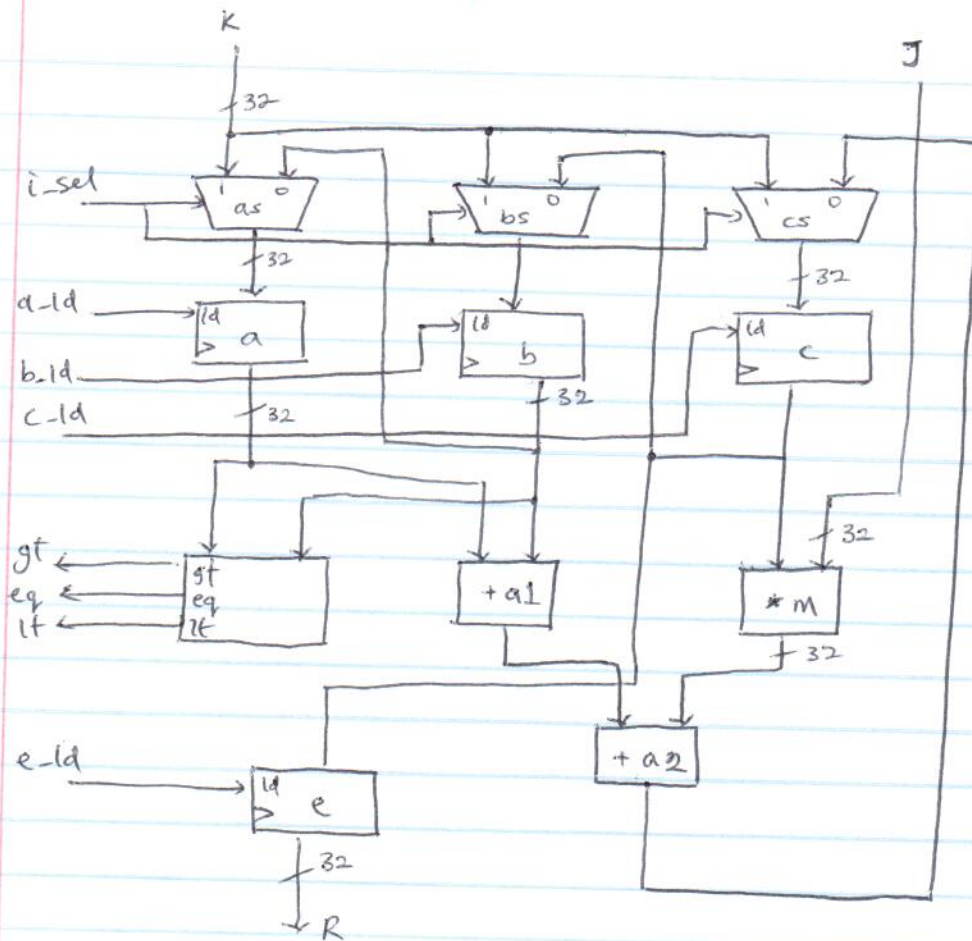 K
J
32
i_sel
1 0
as
1 0
bs
1 0
cs
32
32
a_ld
ld
a
ld
b
ld
c
b_ld
32
32
c_ld
32
gt
eq
lt
gt
eq
lt
+ a1
* m
32
e_ld
ld
e
+ a2
32
R